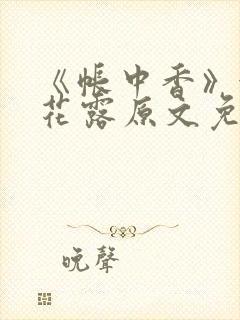 《帐中香》
花露原文免
晚聲